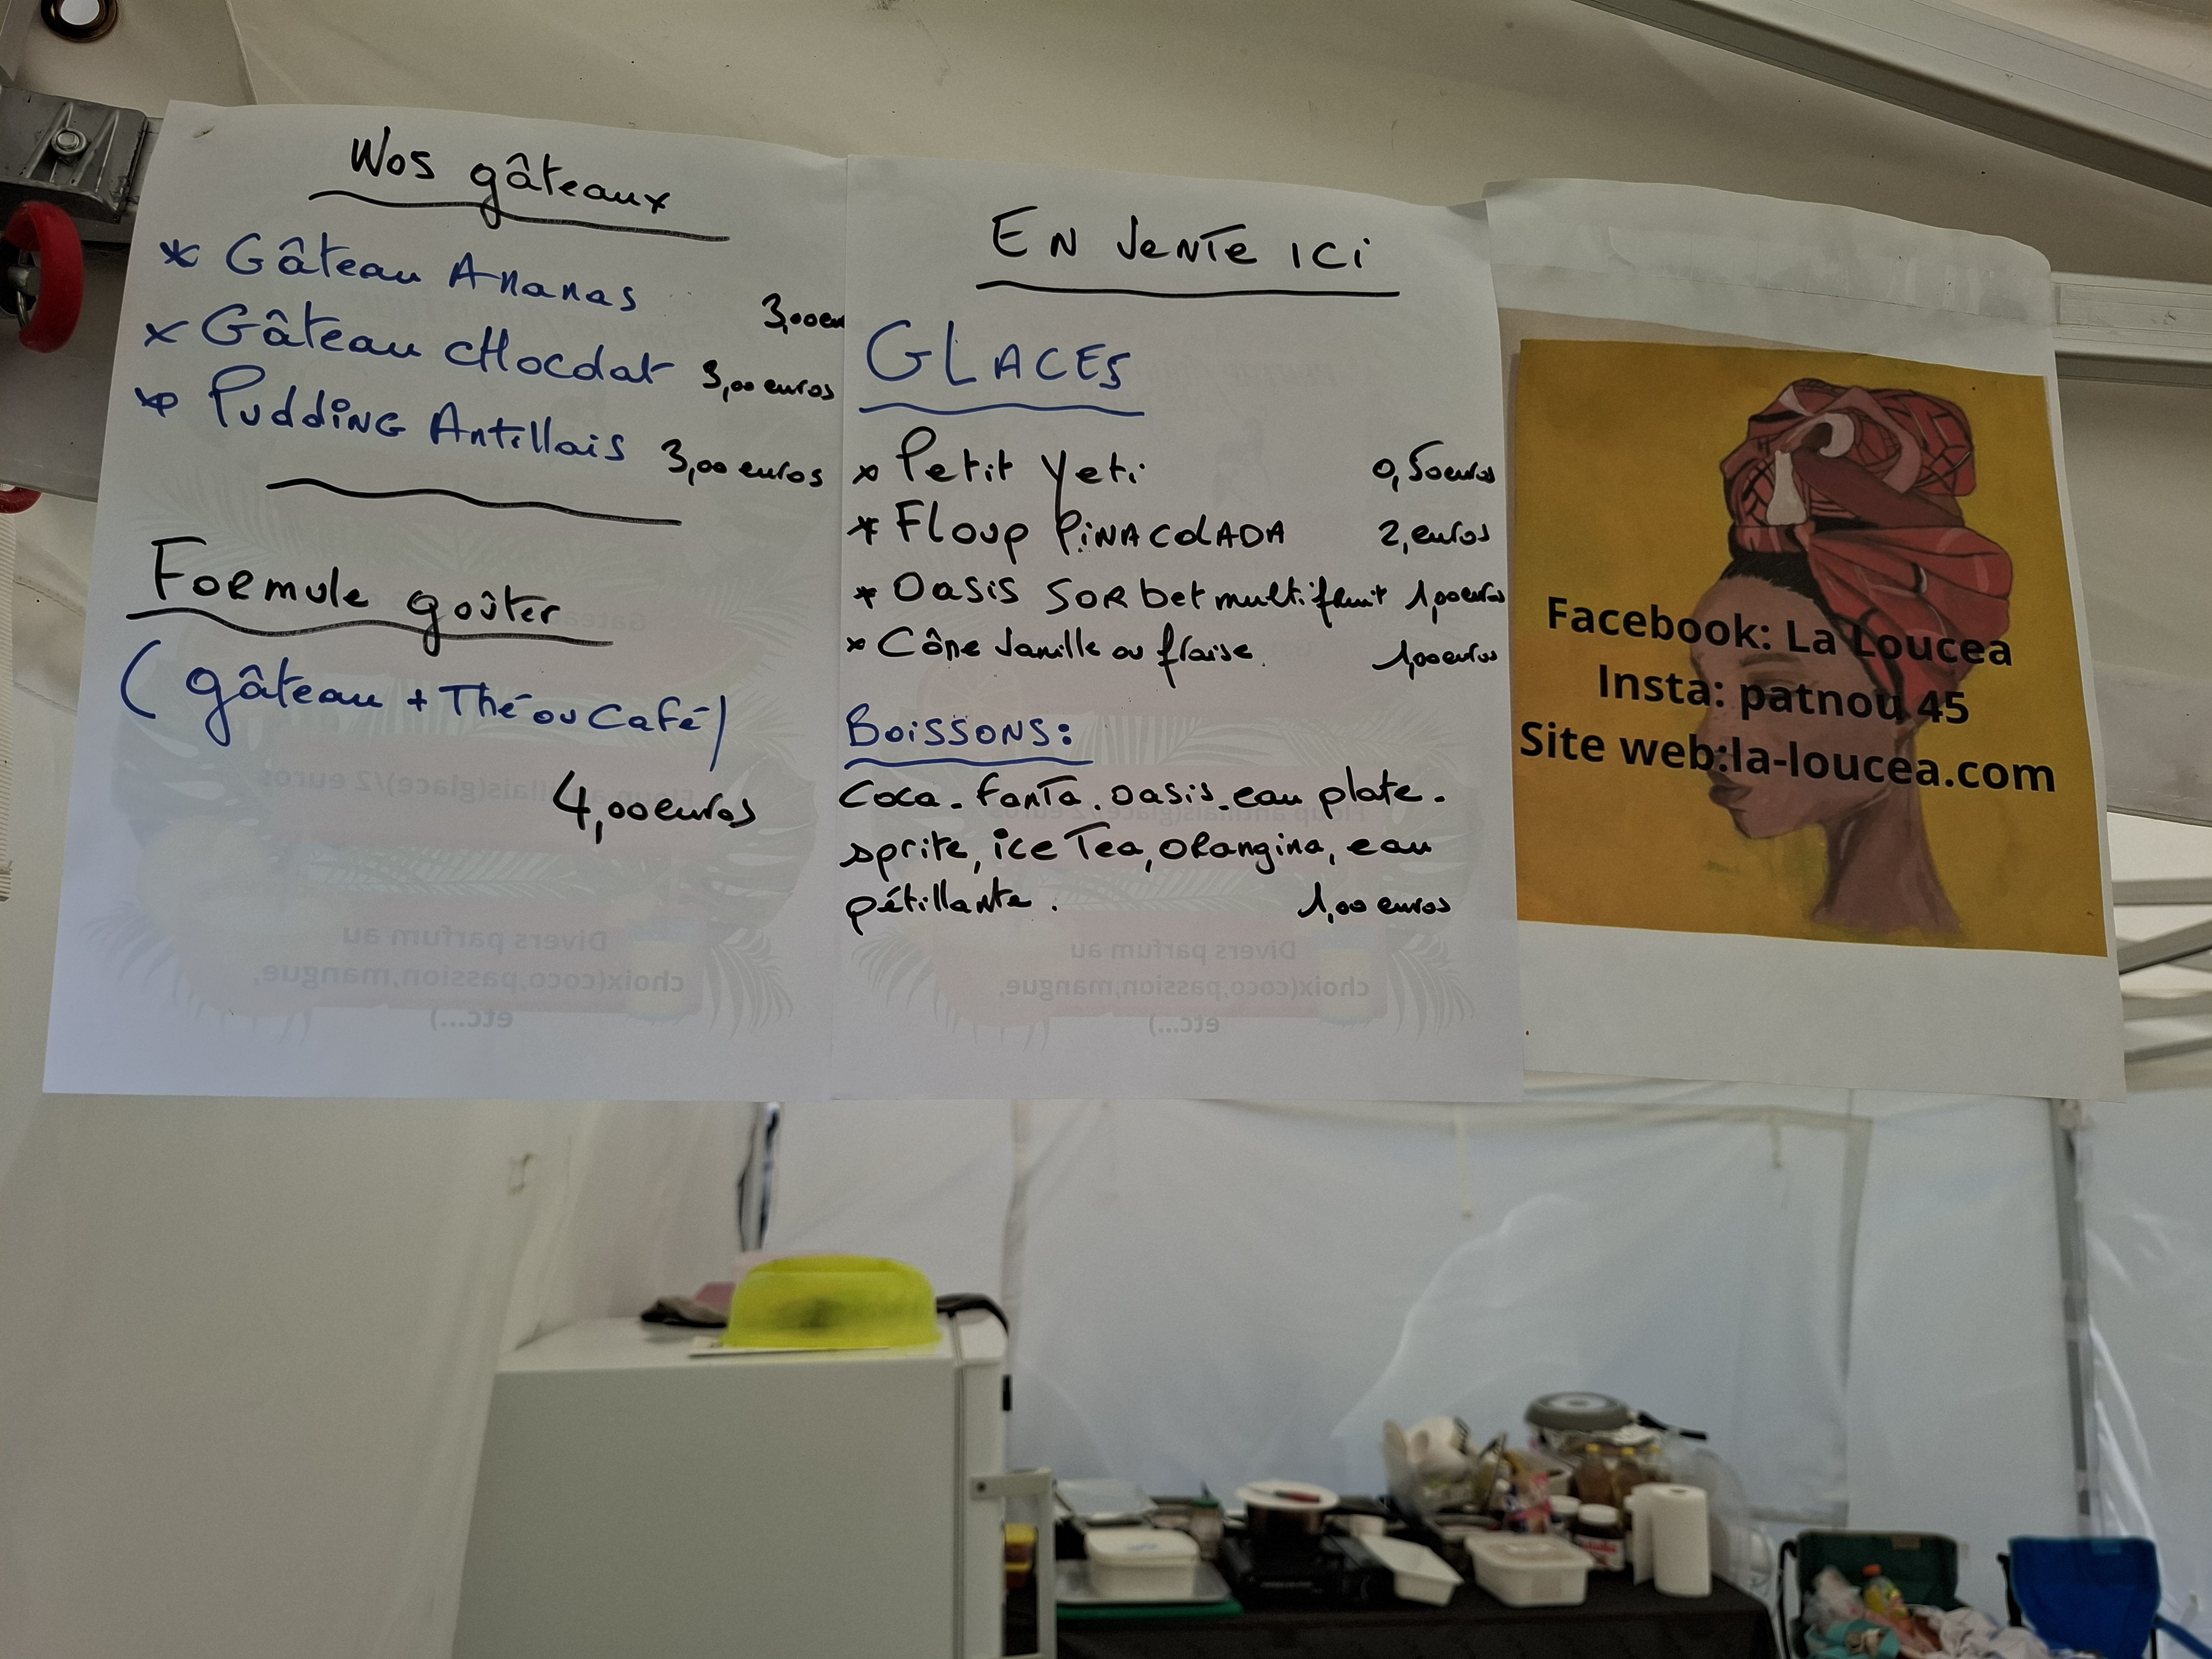 Nos gâteaux
* Gâteau Ananas 3,00eu
* Gâteau cHocolat 3,00 euros
* Pudding Antillais 3,00 euros
Formule goûter
(gâteau + Thé ou Café)
4,00euros
EN VENTE ICI
GLACES
* Petit yeti 0,50euros
* Floup PiNACOlADA 2,euros
* Oasis SORbet multifruit 1,00euros
* Cône Vanille ou fraise. 1,00euros
BOISSONS:
Coca. Fanta. Oasis. eau plate.
sprite, ice Tea, ORangina, eau
pétillante. 1,00 euros
Facebook: La Loucea
Insta: patnou 45
Site web:la-loucea.com
Divers parfum au
choix(coco,passion,mangue,
etc...)
Divers parfum au
choix(coco,passion,mangue,
etc...)